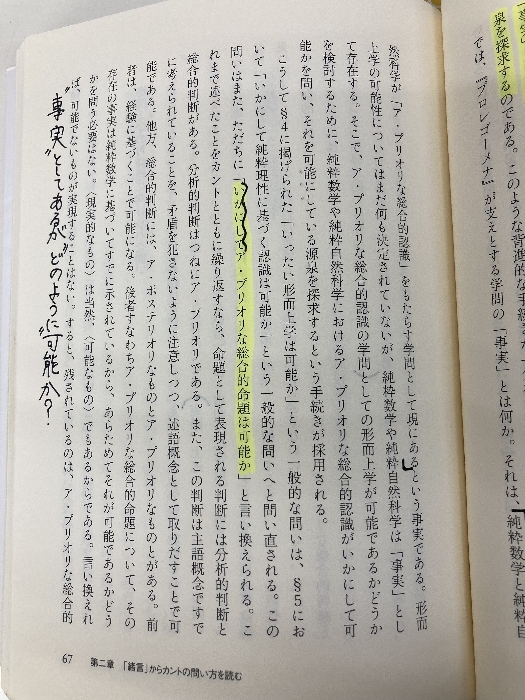 泉を探求するのである。このような背進的な
では、『プロレゴーメナ』が支えとする学問の「事実」とは何か。それは、純粋数学と純
然科学が「ア・プリオリな総合的認識」をもたらす学問として現にあるという事実である。形而
上学の可能性についてはまだ何も決定されていないが、純粋数学や純粋自然科学は「事実」とし
て存在する。そこで、ア・プリオリな総合的認識の学問としての形而上学が可能であるかどうか
を検討するために、純粋数学や純粋自然科学におけるア・プリオリな総合的認識がいかにして可
能かを問い、それを可能にしている源泉を探求するという手続きが採用される。
こうして§4に掲げられた「いったい形而上学は可能か」という一般的な問いは、§5にお
いて「いかにして純粋理性に基づく認識は可能か」という一般的な問いへと問い直される。この
問いはまた、ただちに「いかにしてア・プリオリな総合的命題は可能か」と言い換えられる。こ
れまで述べたことをカントとともに繰り返すなら、命題として表現される判断には分析的判断と
総合的判断がある。分析的判断はつねにア・プリオリである。また、この判断は主語概念ですで
に考えられていることを、矛盾を犯さないように注意しつつ、述語概念として取りだすことで可
能である。他方、総合的判断には、ア・ポステリオリなものとア・プリオリなものとがある。前
者は、経験に基づくことで可能になる。後者すなわちア・プリオリな総合的命題について、その
存在の事実は純粋数学に基づいてすでに示されているから、あらためてそれが可能であるかどう
かを問う必要はない。〈現実的なもの〉は当然、〈可能なもの〉でもあるからである。言い換えれ
ば、可能でないものが実現することはない。すると、残されているのは、ア・プリオリな総合的
"事実"としてあるが"どのように可能か?
67 第二章 「緒言」からカントの問い方を読む